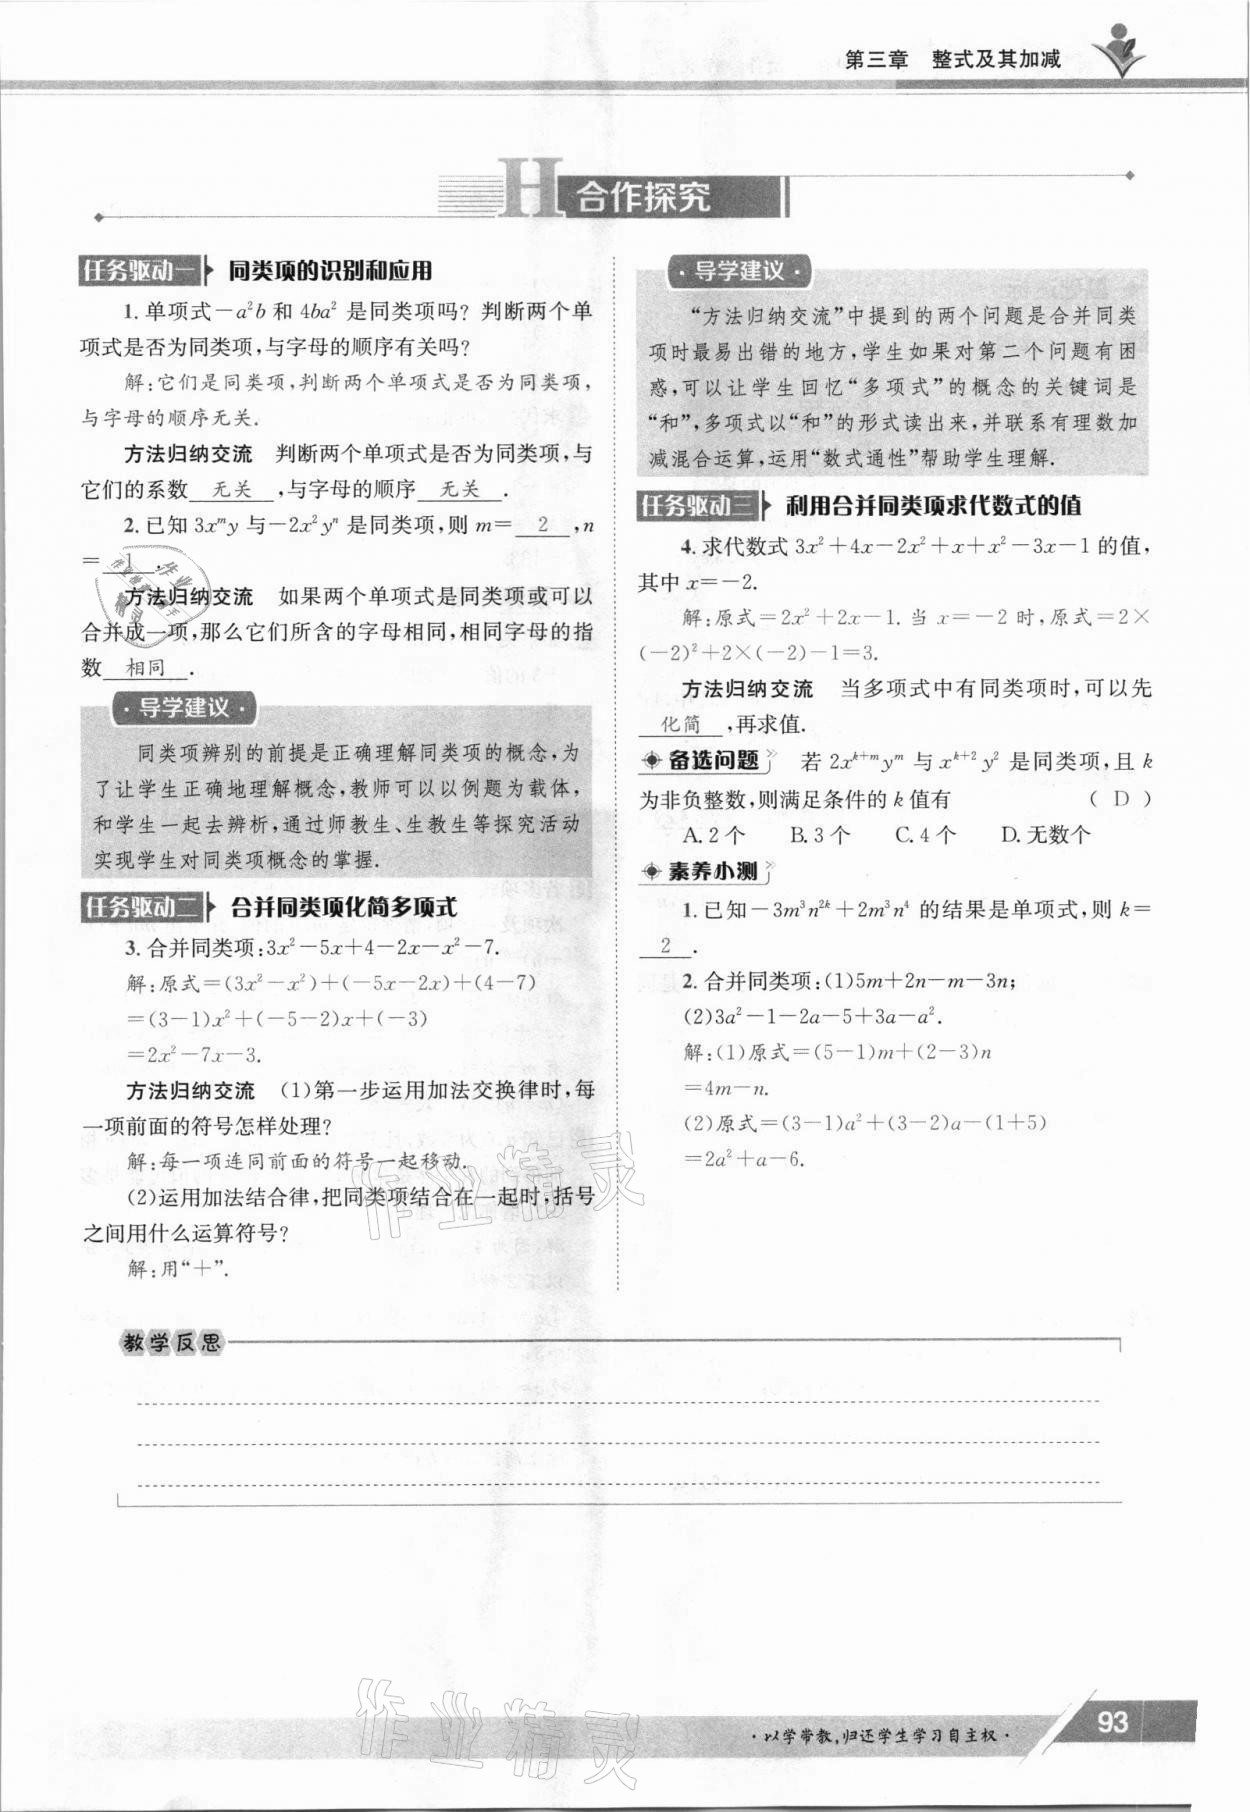 第三章 整式及其加减
H 合作探究
任务驱动一 同类项的识别和应用
1. 单项式－a²b 和 4ba² 是同类项吗? 判断两个单
项式是否为同类项,与字母的顺序有关吗?
解:它们是同类项,判断两个单项式是否为同类项,
与字母的顺序无关.
方法归纳交流 判断两个单项式是否为同类项,与
它们的系数 无关 ,与字母的顺序 无关 .
2. 已知 3xᵐy 与－2x²yⁿ 是同类项,则 m＝ 2 ,n
＝ 1 .
方法归纳交流 如果两个单项式是同类项或可以
合并成一项,那么它们所含的字母相同,相同字母的指
数 相同 .
· 导学建议 ·
同类项辨别的前提是正确理解同类项的概念,为
了让学生正确地理解概念,教师可以以例题为载体,
和学生一起去辨析,通过师教生、生教生等探究活动
实现学生对同类项概念的掌握.
任务驱动二 合并同类项化简多项式
3. 合并同类项:3x²－5x＋4－2x－x²－7.
解:原式＝(3x²－x²)＋(－5x－2x)＋(4－7)
＝(3－1)x²＋(－5－2)x＋(－3)
＝2x²－7x－3.
方法归纳交流 (1)第一步运用加法交换律时,每
一项前面的符号怎样处理?
解:每一项连同前面的符号一起移动.
(2)运用加法结合律,把同类项结合在一起时,括号
之间用什么运算符号?
解:用“＋”.
· 导学建议 ·
“方法归纳交流”中提到的两个问题是合并同类
项时最易出错的地方,学生如果对第二个问题有困
惑,可以让学生回忆“多项式”的概念的关键词是
“和”,多项式以“和”的形式读出来,并联系有理数加
减混合运算,运用“数式通性”帮助学生理解.
任务驱动三 利用合并同类项求代数式的值
4. 求代数式 3x²＋4x－2x²＋x＋x²－3x－1 的值,
其中 x＝－2.
解:原式＝2x²＋2x－1. 当 x＝－2 时,原式＝2×
(－2)²＋2×(－2)－1＝3.
方法归纳交流 当多项式中有同类项时,可以先
化简 ,再求值.
备选问题 若 2xᵏ⁺ᵐyᵐ 与 xᵏ⁺²y² 是同类项,且 k
为非负整数,则满足条件的 k 值有 ( D )
A. 2 个 B. 3 个 C. 4 个 D. 无数个
素养小测
1. 已知－3m³n²ᵏ＋2m³n⁴ 的结果是单项式,则 k＝
2 .
2. 合并同类项:(1)5m＋2n－m－3n;
(2)3a²－1－2a－5＋3a－a².
解:(1)原式＝(5－1)m＋(2－3)n
＝4m－n.
(2)原式＝(3－1)a²＋(3－2)a－(1＋5)
＝2a²＋a－6.
作业精灵
教学反思
作业精灵
· 以学带教,归还学生学习自主权 ·
93